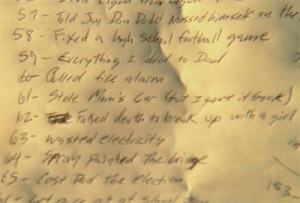 57- Told Sun Dan Dodd Messed himself on the
58- Fixed a high school football game
59- Everything I died to Dad
60 Pulled fire alarm
61- Stole Mom's Car (but I gave it back)
62- Faked death to break up with a girl
63- wasted electricity
64- Spray painted the bridge
65- Cost Dad the election
183